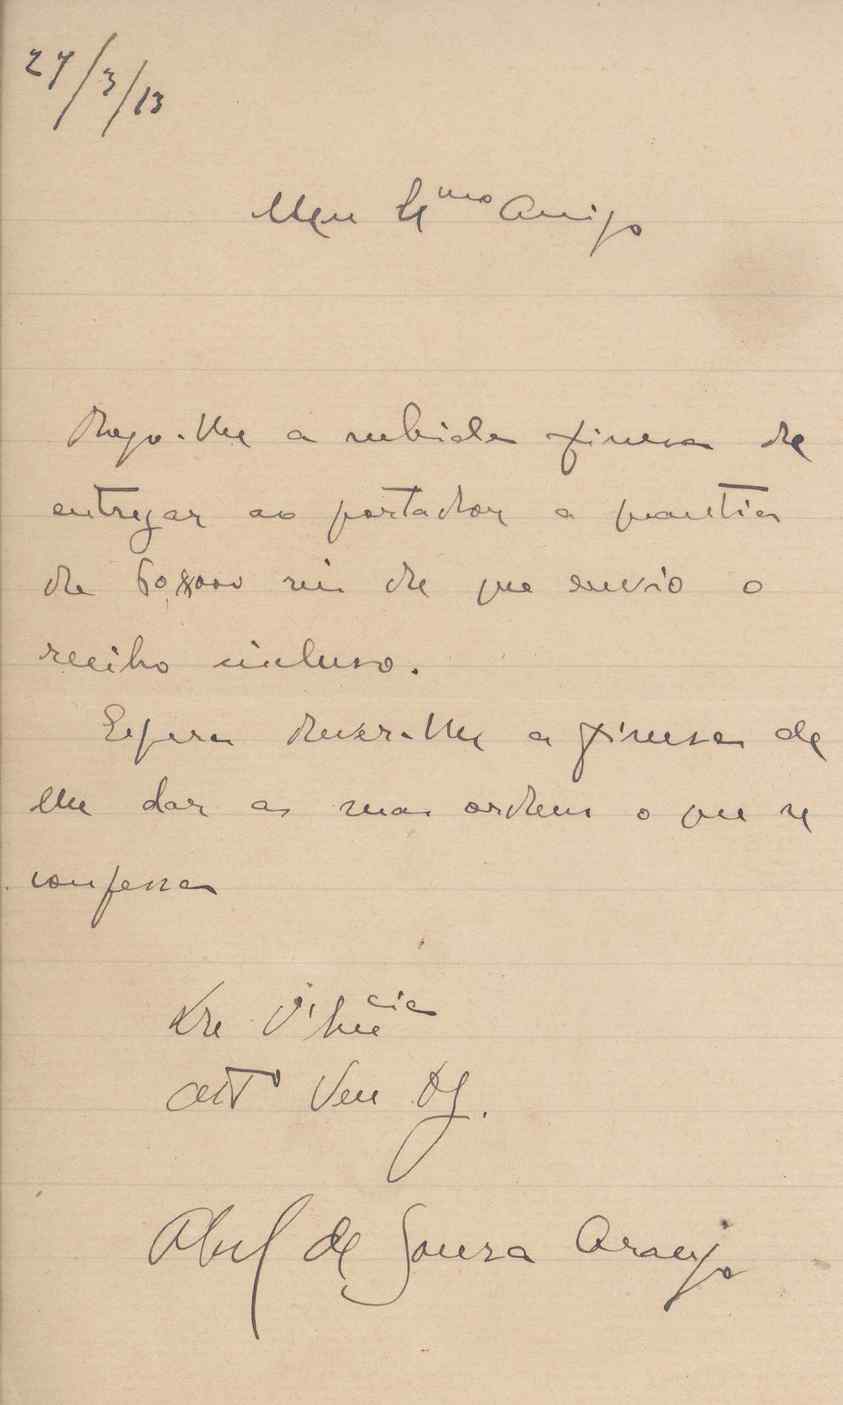 27/3/13
Meu Ex^mo Amigo
Rogo-lhe a subida finesa de
entregar ao portador a quantia
de 60$000 reis de que envio o
recibo incluso.
Espera dever-lhe a finesa de
lhe dar as suas ordens o que se
confessa
De V. Ex^cia
Att^o Ven
Abel de Sousa Araujo